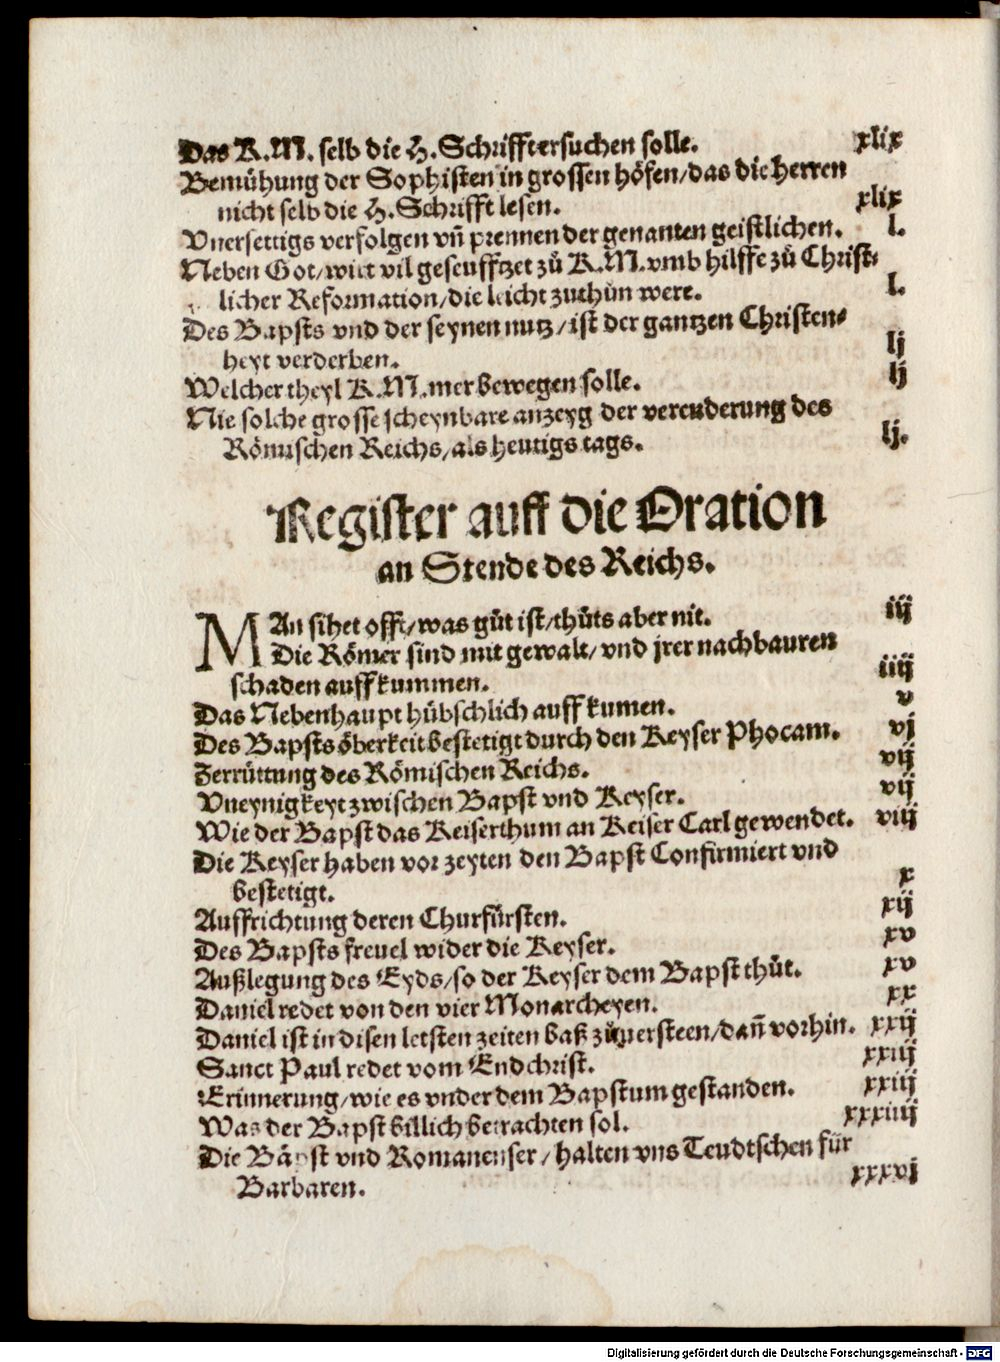 Das K.M. selb die H. Schrifft ersuchen solle. xlix
Bemühung der Sophisten in grossen höfen/das die herren
nicht selb die H. Schrifft lesen. xlix
Vnersettigs verfolgen vñ prennen der genanten geistlichen. l.
Neben Got/wirt vil geseufftzet zů K.M. vmb hilffe zů Christ-
licher Reformation/die leicht zuthůn were. l.
Des Bapsts vnd der seynen nutz/ist der gantzen Christen-
heyt verderben. lj
Welcher theyl K.M. mer bewegen solle. lj
Nie solche grosse scheynbare anzeyg der verenderung des
Römischen Reichs/als heutigs tags. lj.
Register auff die Oration
an Stende des Reichs.
MAn sihet offt/was gůt ist/thůts aber nit. iij
Die Römer sind mit gewalt/vnd jrer nachbauren
schaden auffkummen. iiij
Das Nebenhaupt hübschlich auffkumen. v
Des Bapsts öberkeit bestetigt durch den Keyser Phocam. vj
Zerrüttung des Römischen Reichs. vij
Vneynigkeyt zwischen Bapst vnd Keyser. vij
Wie der Bapst das Keiserthum an Keiser Carl gewendet. viij
Die Keyser haben vor zeyten den Bapst Confirmiert vnd
bestetigt. x
Auffrichtung deren Churfürsten. xij
Des Bapsts freuel wider die Keyser. xv
Außlegung des Eyds/so der Keyser dem Bapst thůt. xv
Daniel redet von den vier Monarcheyen. xx
Daniel ist in disen letsten zeiten baß zůuersteen/dañ vorhin. xxij
Sanct Paul redet vom Endchrist. xxiij
Erinnerung/wie es vnder dem Bapstum gestanden. xxiij
Was der Bapst billich betrachten sol. xxxiiij
Die Bäpst vnd Romanenser/halten vns Teudtschen für
Barbaren. xxxvj
Digitalisierung gefördert durch die Deutsche Forschungsgemeinschaft - DFG